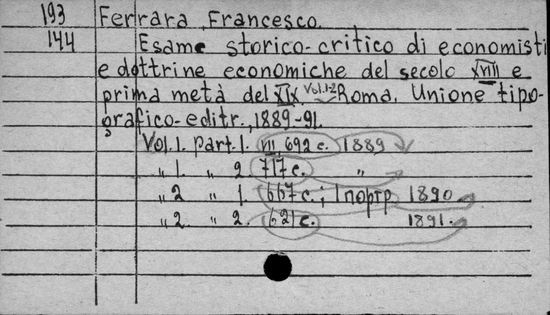 193 Ferrara, Francesco.
144 Esame storico-critico di economisti
e dottrine economiche del secolo XVIII e
prima metà del XIX Vol. 1-2 Roma. Unione tipo-
grafico-editr., 1889-91.
Vol. 1. part. 1. VII, 692 c. 1889
„ 1. „ 2. 717 c. „
„ 2 „ 1. 667 c.; 1 портр 1890
„ 2. „ 2. 621 c. 1891.